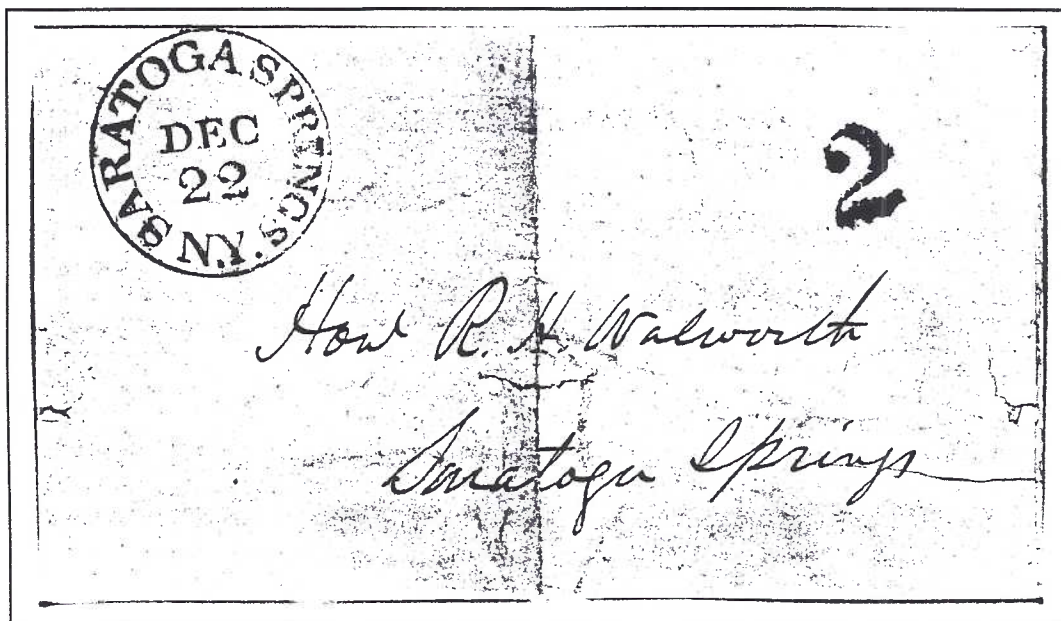 SARATOGA SPRINGS N.Y.
DEC
22
2
Hon R. H. Walworth
Saratoga Springs